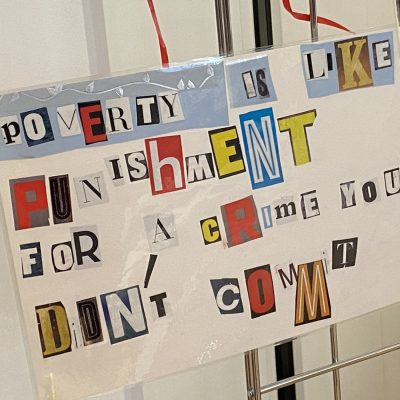 POVERTY IS LIKE
PUNISHMENT
FOR A CRImE YOU
DiDN'T COMMIT